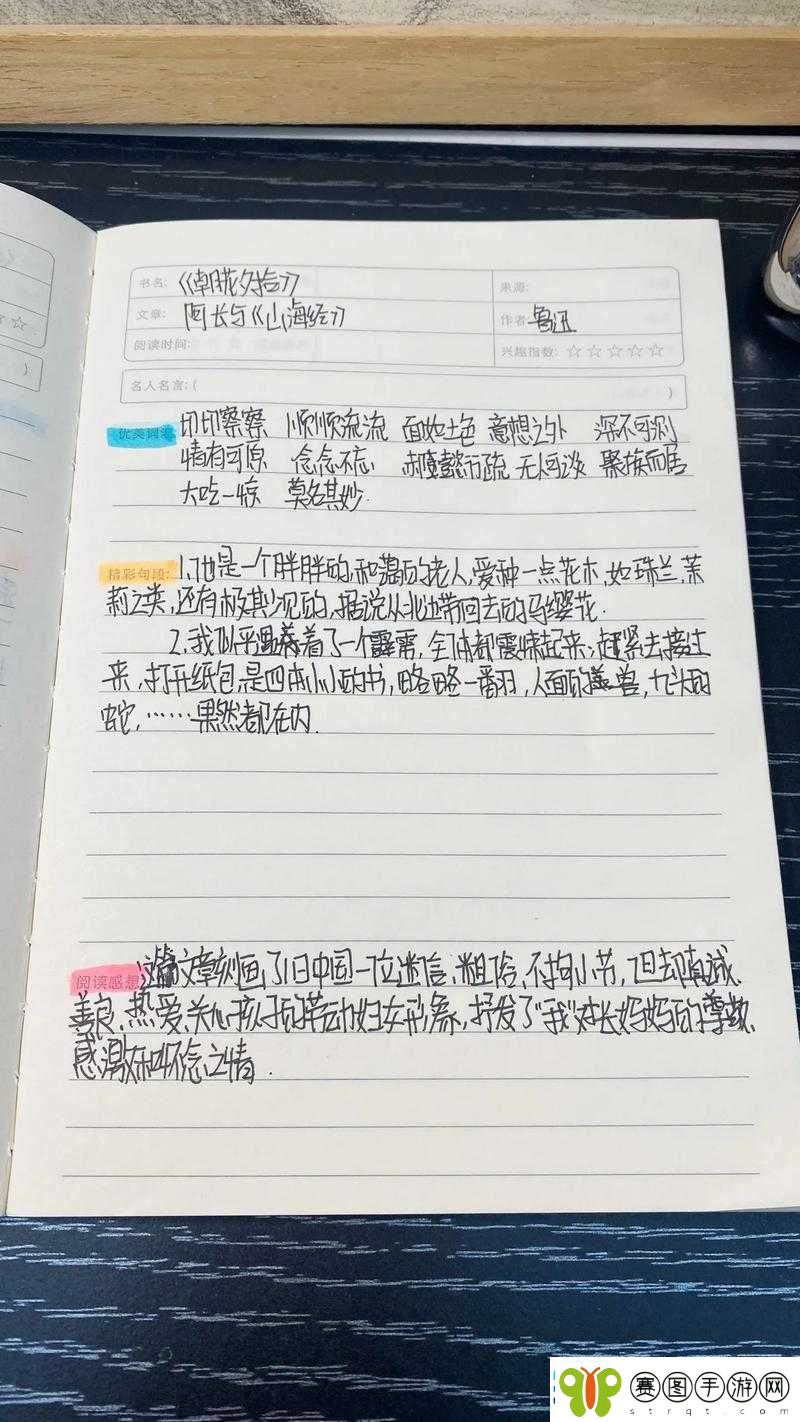 书名:《朝花夕拾》 来源:
文章: 阿长与《山海经》 作者 鲁迅
阅读时间: 兴趣指数: ☆☆☆☆☆
名人名言:( )
优美词 切切察察 顺顺流流 面如土色 意想之外 深不可测
情有可原 念念不忘 疏懒 无人可谈 聚族而居
大吃一惊 莫名其妙.
精彩句段: 1.他是一个胖胖的,和蔼的老人,爱种一点花木,如珠兰,茉
莉之类,还有极其少见的,据说从北边带回去的马缨花.
2.我似乎遇着了一个霹雳,全体都震悚起来;赶紧去接过
来,打开纸包,是四本小小的书,略略一翻,人面的兽,九头的
蛇,……果然都在内.
阅读感想 这篇文章刻画了旧中国一位迷信、粗俗、不拘小节,但却真诚、
善良、热爱、关心孩子的劳动妇女形象,抒发了"我"对长妈妈的尊敬、
感激和怀念之情.
赛图手游网
strqt.com